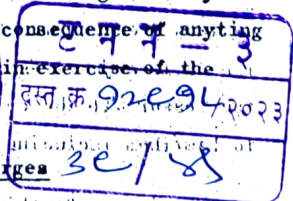 consequence of anyting
ट न न - ३
in exercise of the
दस्त क्र. १२९१५/२०२३
rges ३९/४५